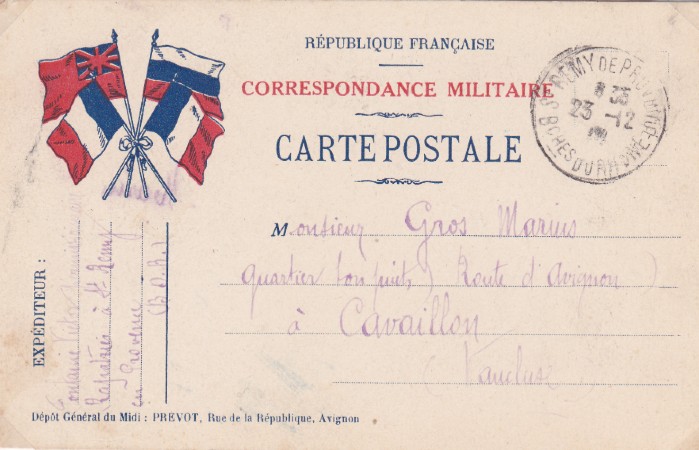 RÉPUBLIQUE FRANÇAISE
CORRESPONDANCE MILITAIRE
CARTE POSTALE
ST REMY DE PROVENCE
8 35
23 -12
BCHES DU RHONE
Monsieur Gros Marius
Quartier bon puits (Route d'Avignon)
à Cavaillon
Vaucluse
EXPÉDITEUR :
Fontaine Victor
à St Remy
en Provence
(B. D. R.)
Dépôt Général du Midi : PREVOT, Rue de la République, Avignon